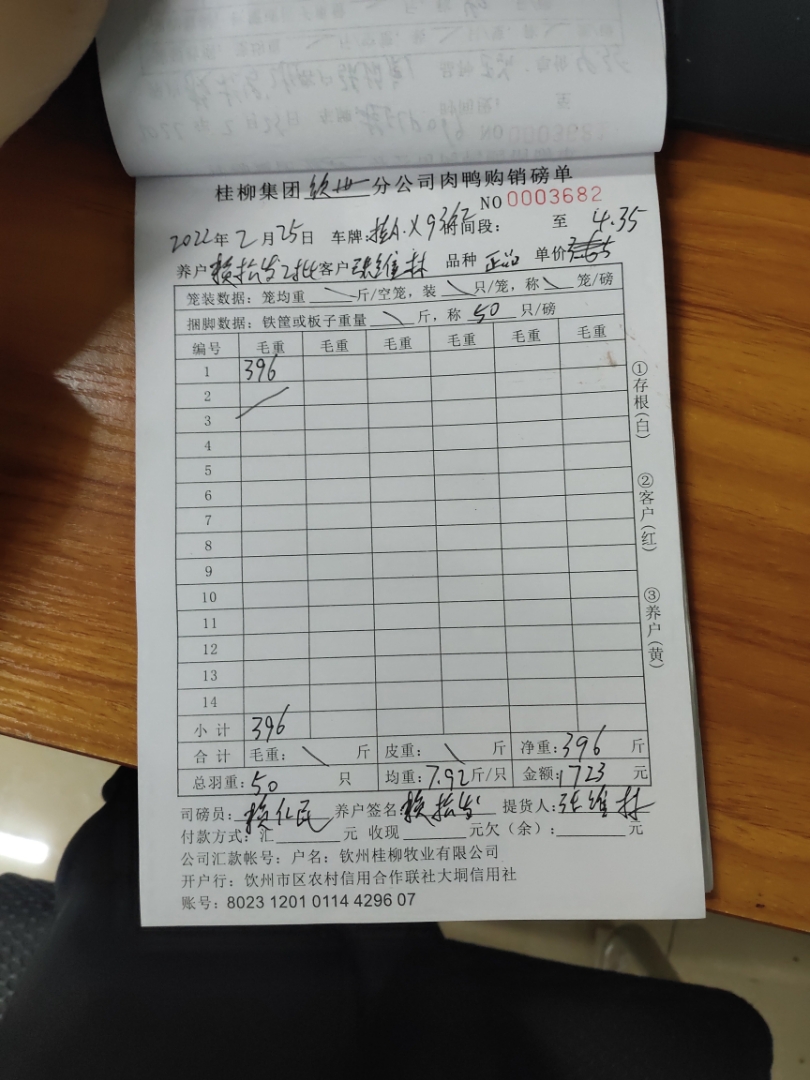 桂柳集团 钦州 分公司肉鸭购销磅单
NO 0003682
2022年2月25日 车牌: 时间段: 至 4.35
养户 客户 张维林 品种 正品 单价
笼装数据：笼均重 \ 斤/空笼，装 \ 只/笼，称 \ 笼/磅
捆脚数据：铁筐或板子重量 \ 斤，称 50 只/磅
编号 毛重 毛重 毛重 毛重 毛重 毛重
1 396
2
3
4
5
6
7
8
9
10
11
12
13
14
小计 396
合计 毛重： \ 斤 皮重： \ 斤 净重：396 斤
总羽重：50 只 均重：7.92斤/只 金额：1723 元
司磅员： 养户签名： 提货人：张维林
付款方式：汇 元 收现 元欠（余）： 元
公司汇款帐号：户名：钦州桂柳牧业有限公司
开户行：钦州市区农村信用合作联社大垌信用社
账号：8023 1201 0114 4296 07
①存根(白)
②客户(红)
③养户(黄)